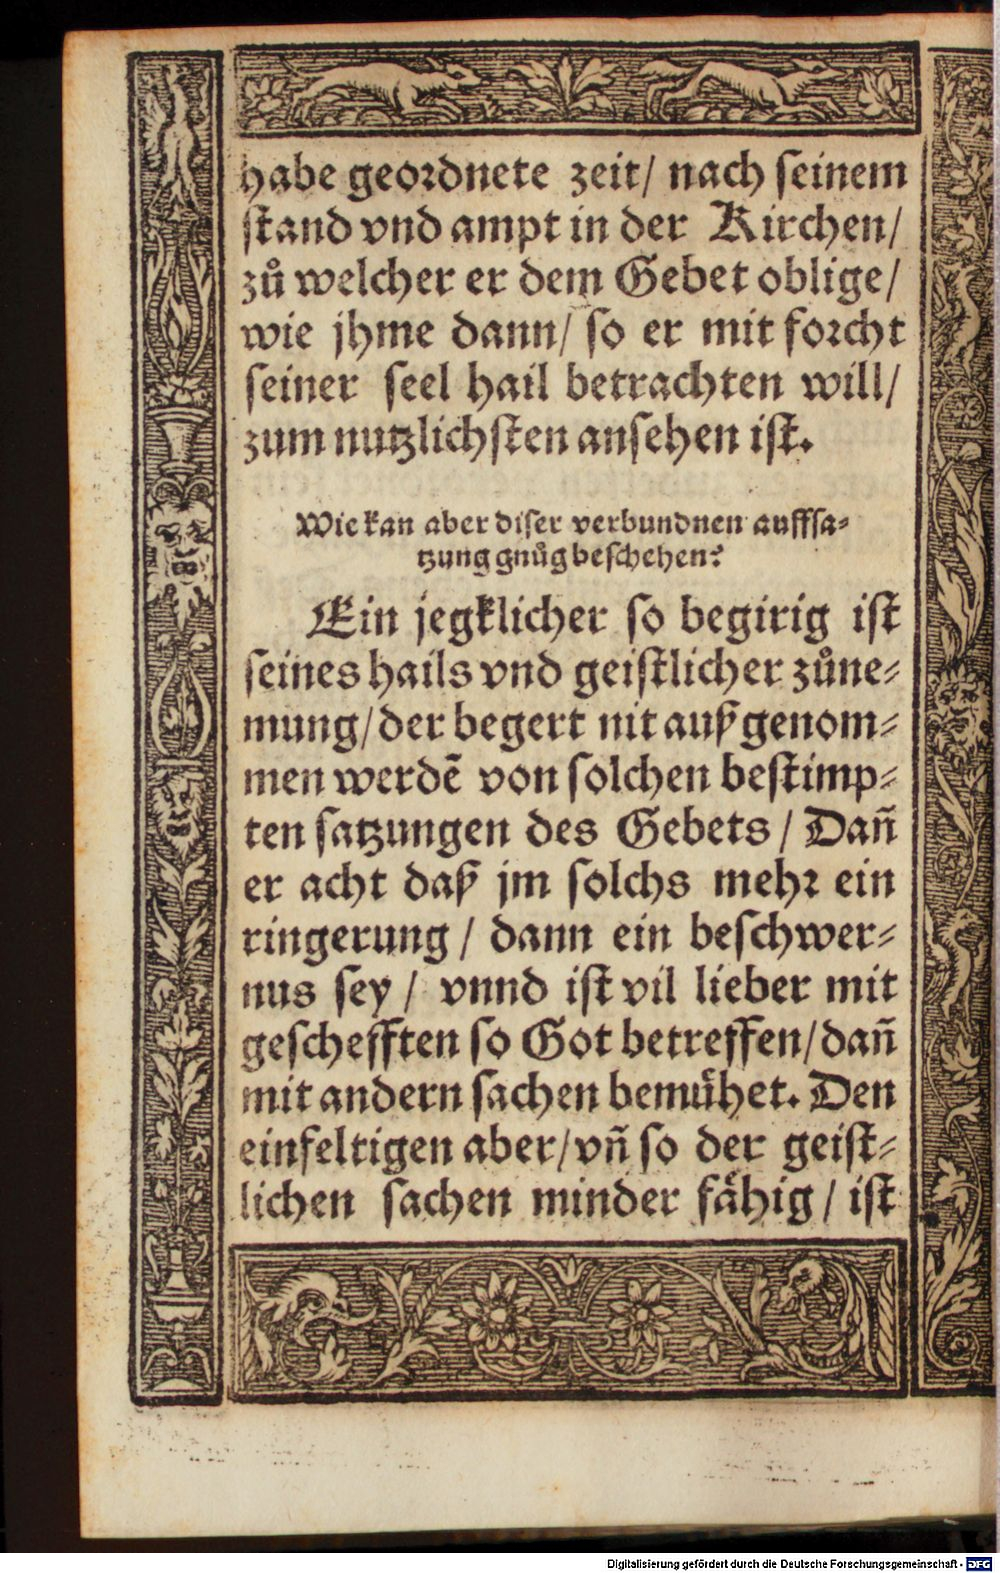 habe geordnete zeit/ nach seinem
stand vnd ampt in der Kirchen/
zů welcher er dem Gebet oblige/
wie jhme dann/ so er mit forcht
seiner seel hail betrachten will/
zum nutzlichsten ansehen ist.
Wie kan aber diser verbundnen auffsa-
tzung gnůg beschehen?
Ein jegklicher so begirig ist
seines hails vnd geistlicher zůne-
mung/ der begert nit außgenom-
men werdē von solchen bestimp-
ten satzungen des Gebets/ Dañ
er acht daß jm solchs mehr ein
ringerung/ dann ein beschwer-
nus sey/ vnnd ist vil lieber mit
geschefften so Got betreffen/ dañ
mit andern sachen bemühet. Den
einfeltigen aber/ vñ so der geist-
lichen sachen minder fähig/ ist
Digitalisierung gefördert durch die Deutsche Forschungsgemeinschaft - DFG